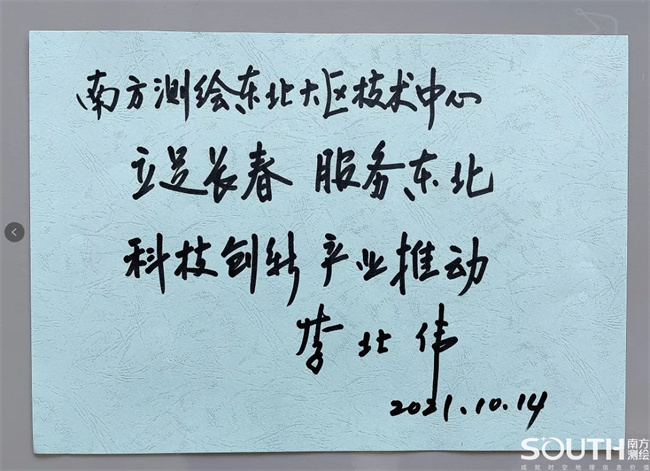 南方测绘东北大区技术中心
立足长春 服务东北
科技创新 产业推动
李北伟
2021.10.14
SOUTH 南方测绘
成就时空地理信息价值